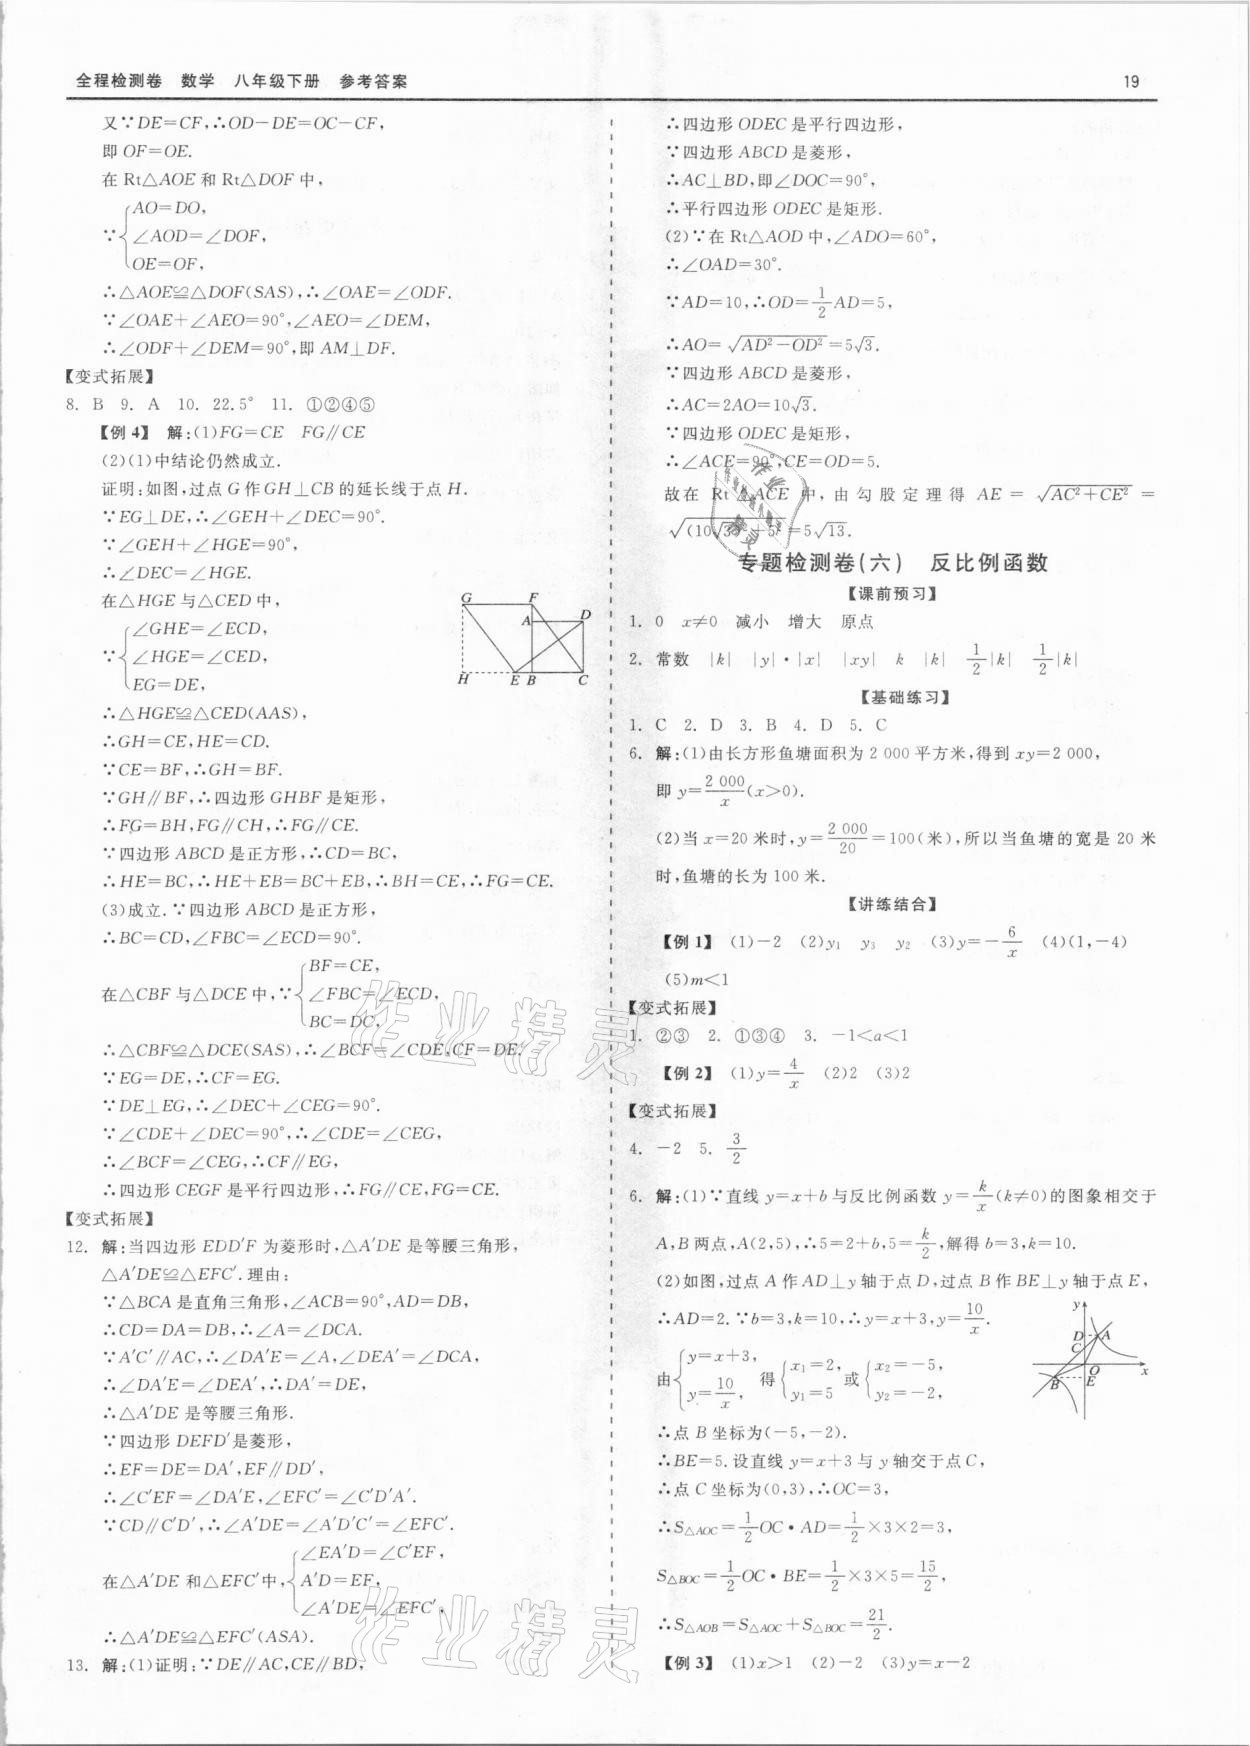 全程检测卷　数学　八年级下册　参考答案
19
又∵DE=CF,∴OD-DE=OC-CF,
即 OF=OE.
在 Rt△AOE 和 Rt△DOF 中,
∵{AO=DO,
∠AOD=∠DOF,
OE=OF,
∴△AOE≌△DOF(SAS),∴∠OAE=∠ODF.
∵∠OAE+∠AEO=90°,∠AEO=∠DEM,
∴∠ODF+∠DEM=90°,即 AM⊥DF.
【变式拓展】
8. B　9. A　10. 22.5°　11. ①②④⑤
【例 4】 解:(1)FG=CE　FG∥CE
(2)(1)中结论仍然成立.
证明:如图,过点 G 作 GH⊥CB 的延长线于点 H.
∵EG⊥DE,∴∠GEH+∠DEC=90°.
∵∠GEH+∠HGE=90°,
∴∠DEC=∠HGE.
在△HGE 与△CED 中,
∵{∠GHE=∠ECD,
∠HGE=∠CED,
EG=DE,
G F A D H E B C
∴△HGE≌△CED(AAS),
∴GH=CE,HE=CD.
∵CE=BF,∴GH=BF.
∵GH∥BF,∴四边形 GHBF 是矩形,
∴FG=BH,FG∥CH,∴FG∥CE.
∵四边形 ABCD 是正方形,∴CD=BC,
∴HE=BC,∴HE+EB=BC+EB,∴BH=CE,∴FG=CE.
(3)成立.∵四边形 ABCD 是正方形,
∴BC=CD,∠FBC=∠ECD=90°.
在△CBF 与△DCE 中,∵{BF=CE,
∠FBC=∠ECD,
BC=DC,
∴△CBF≌△DCE(SAS),∴∠BCF=∠CDE,CF=DE.
∵EG=DE,∴CF=EG.
∵DE⊥EG,∴∠DEC+∠CEG=90°.
∵∠CDE+∠DEC=90°,∴∠CDE=∠CEG,
∴∠BCF=∠CEG,∴CF∥EG,
∴四边形 CEGF 是平行四边形,∴FG∥CE,FG=CE.
【变式拓展】
12. 解:当四边形 EDD′F 为菱形时,△A′DE 是等腰三角形,
△A′DE≌△EFC′.理由:
∵△BCA 是直角三角形,∠ACB=90°,AD=DB,
∴CD=DA=DB,∴∠A=∠DCA.
∵A′C′∥AC,∴∠DA′E=∠A,∠DEA′=∠DCA,
∴∠DA′E=∠DEA′,∴DA′=DE,
∴△A′DE 是等腰三角形.
∵四边形 DEFD′是菱形,
∴EF=DE=DA′,EF∥DD′,
∴∠C′EF=∠DA′E,∠EFC′=∠C′D′A′.
∵CD∥C′D′,∴∠A′DE=∠A′D′C′=∠EFC′.
在△A′DE 和△EFC′中,{∠EA′D=∠C′EF,
A′D=EF,
∠A′DE=∠EFC′,
∴△A′DE≌△EFC′(ASA).
13. 解:(1)证明:∵DE∥AC,CE∥BD,
∴四边形 ODEC 是平行四边形,
∵四边形 ABCD 是菱形,
∴AC⊥BD,即∠DOC=90°,
∴平行四边形 ODEC 是矩形.
(2)∵在 Rt△AOD 中,∠ADO=60°,
∴∠OAD=30°.
∵AD=10,∴OD=1/2 AD=5,
∴AO=√(AD²-OD²)=5√3.
∵四边形 ABCD 是菱形,
∴AC=2AO=10√3.
∵四边形 ODEC 是矩形,
∴∠ACE=90°,CE=OD=5.
故在 Rt△ACE 中,由勾股定理得 AE=√(AC²+CE²)=
√((10√3)²+5²)=5√13.
专题检测卷(六)　反比例函数
【课前预习】
1. 0　x≠0　减小　增大　原点
2. 常数　|k|　|y|·|x|　|xy|　k　|k|　1/2|k|　1/2|k|
【基础练习】
1. C　2. D　3. B　4. D　5. C
6. 解:(1)由长方形鱼塘面积为 2 000 平方米,得到 xy=2 000,
即 y=2 000/x(x>0).
(2)当 x=20 米时,y=2 000/20=100(米),所以当鱼塘的宽是 20 米
时,鱼塘的长为 100 米.
【讲练结合】
【例 1】 (1)-2　(2)y₁　y₃　y₂　(3)y=-6/x　(4)(1,-4)
(5)m<1
【变式拓展】
1. ②③　2. ①③④　3. -1<a<1
【例 2】 (1)y=4/x　(2)2　(3)2
【变式拓展】
4. -2　5. 3/2
6. 解:(1)∵直线 y=x+b 与反比例函数 y=k/x(k≠0)的图象相交于
A,B 两点,A(2,5),∴5=2+b,5=k/2,解得 b=3,k=10.
(2)如图,过点 A 作 AD⊥y 轴于点 D,过点 B 作 BE⊥y 轴于点 E,
∴AD=2.∵b=3,k=10,∴y=x+3,y=10/x.
由{y=x+3, y=10/x, 得{x₁=2, y₁=5 或{x₂=-5, y₂=-2,
y D A C O x B E
∴点 B 坐标为(-5,-2).
∴BE=5.设直线 y=x+3 与 y 轴交于点 C,
∴点 C 坐标为(0,3),∴OC=3,
∴S△AOC=1/2 OC·AD=1/2×3×2=3,
S△BOC=1/2 OC·BE=1/2×3×5=15/2,
∴S△AOB=S△AOC+S△BOC=21/2.
【例 3】 (1)x>1　(2)-2　(3)y=x-2
作业精灵
作业精灵